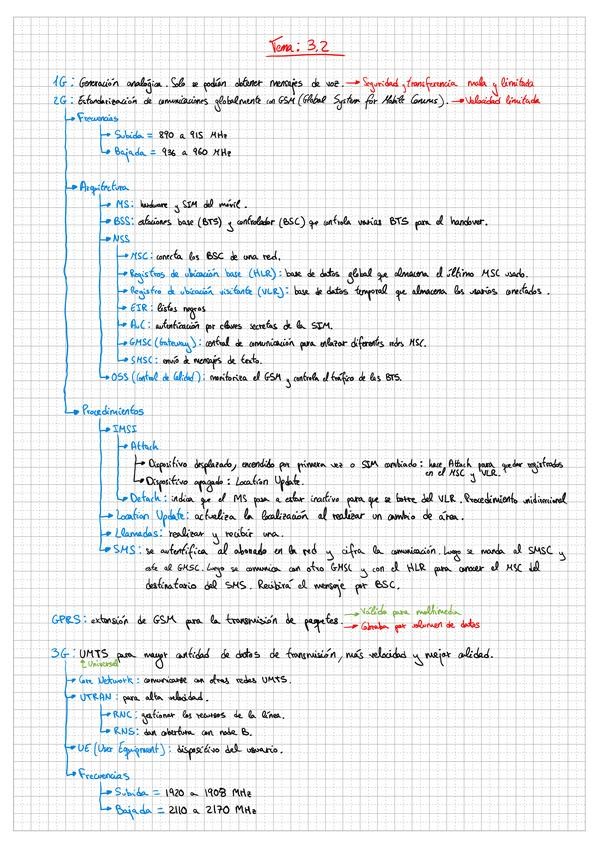 Tema: 3.2
1G: Generación analógica. Solo se podían obtener mensajes de voz. → Seguridad y transferencia mala y limitada
2G: Estandarización de comunicaciones globalmente con GSM (Global System for Mobile Comunns). → Velocidad limitada
→ Frecuencias
→ Subida = 890 a 915 MHz
→ Bajada = 936 a 960 MHz
→ Arquitectura
→ MS: hardware y SIM del móvil.
→ BSS: estaciones base (BTS) y controlador (BSC) que controla varias BTS para el handover.
→ NSS
→ MSC: conecta los BSC de una red.
→ Registros de ubicación base (HLR): base de datos global que almacena el último MSC usado.
→ Registro de ubicación visitante (VLR): base de datos temporal que almacena los usuarios conectados.
→ EIR: listas negras
→ AuC: autenticación por claves secretas de la SIM.
→ GMSC (Gateway): central de comunicación para enlazar diferentes redes MSC.
→ SMSC: envío de mensajes de texto.
→ OSS (Control de Calidad): monitoriza el GSM y controla el tráfico de las BTS.
→ Procedimientos
→ IMSI
→ Attach
→ Dispositivo desplazado, encendido por primera vez o SIM cambiado: hace Attach para quedar registrados
en el MSC y VLR.
→ Dispositivo apagado: Location Update.
→ Detach: indica que el MS pasa a estar inactivo para que se borre del VLR. Procedimiento unidireccional
→ Location Update: actualiza la localización al realizar un cambio de área.
→ Llamadas: realizar y recibir una.
→ SMS: se autentifica al abonado en la red y cifra la comunicación. Luego se manda al SMSC y
este al GMSC. Luego se comunica con otro GMSC y con el HLR para conocer el MSC del
destinatario del SMS. Recibirá el mensaje por BSC.
GPRS: extensión de GSM para la transmisión de paquetes. → Válido para multimedia
→ Cobraba por volumen de datos
3G: UMTS para mayor cantidad de datos de transmisión, más velocidad y mejor calidad.
Universal
→ Core Network: comunicarse con otras redes UMTS.
→ UTRAN: para alta velocidad.
→ RNC: gestionar los recursos de la línea.
→ RNS: dan cobertura con node B.
→ UE (User Equipment): dispositivo del usuario.
→ Frecuencias
→ Subida = 1920 a 1908 MHz
→ Bajada = 2110 a 2170 MHz